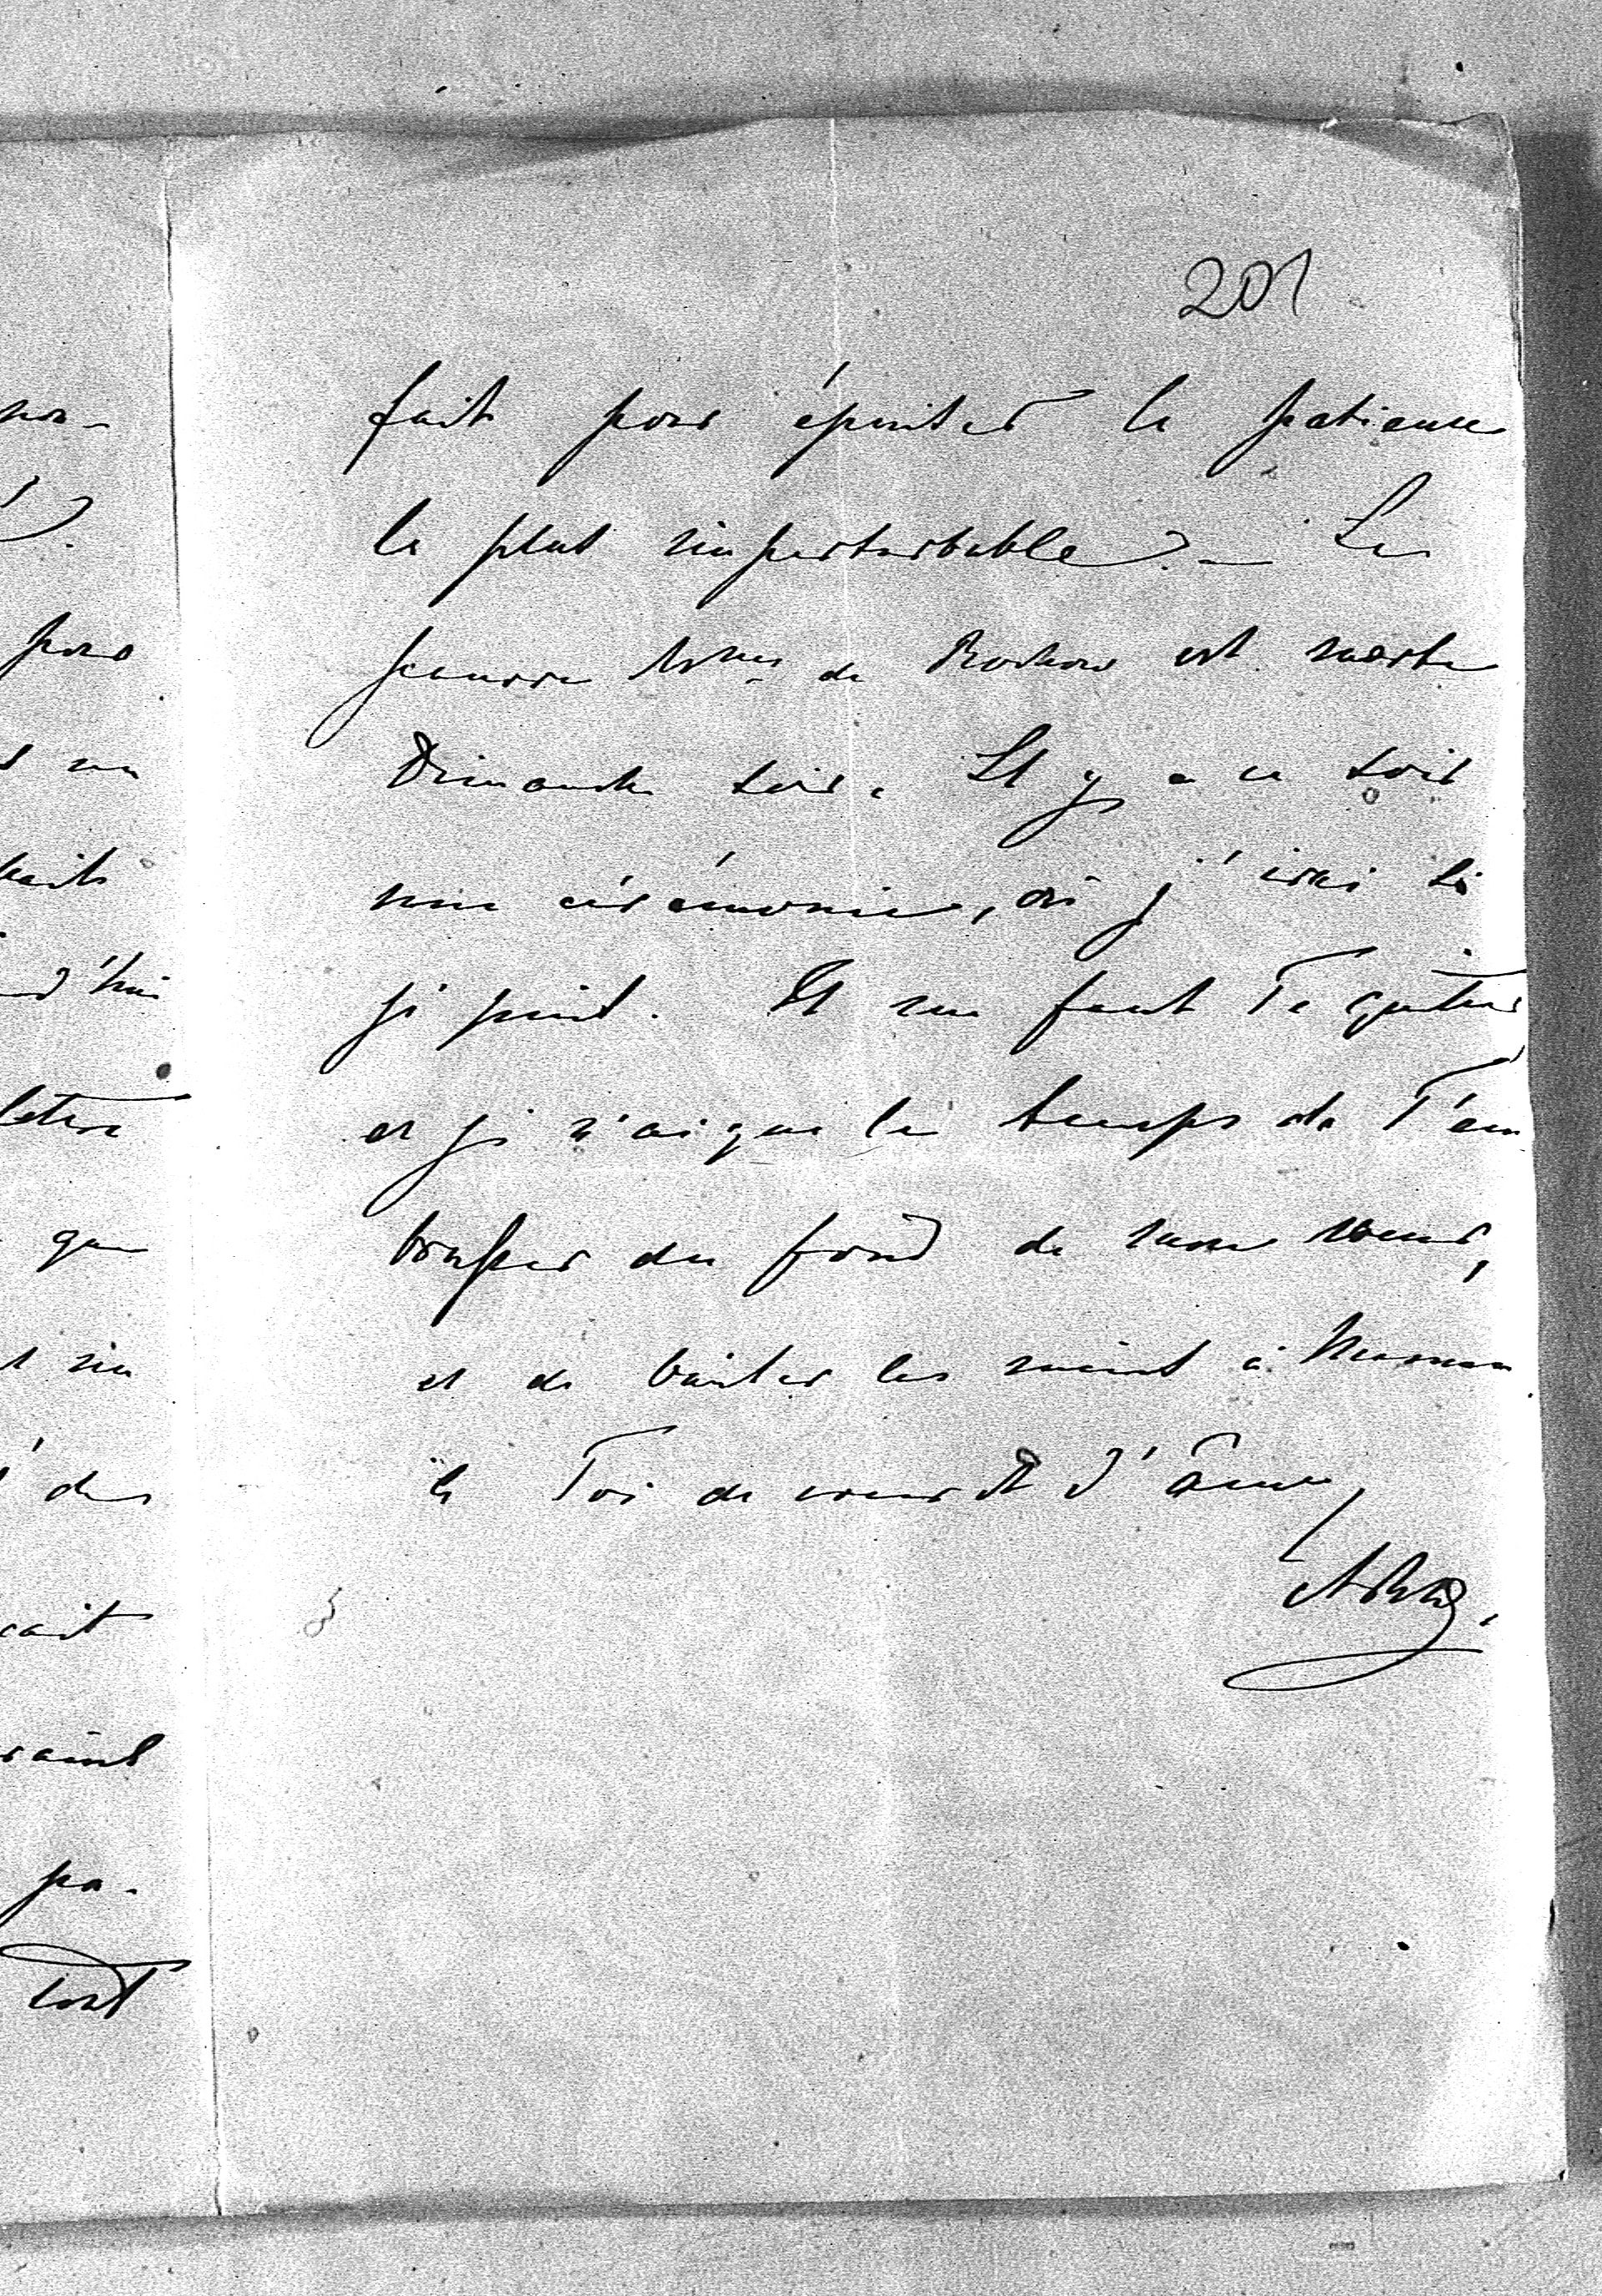 201
fait pour épuiser la patience
la plus imperturbable. — La
pauvre Mme de Rochow est morte
Dimanche soir. Il y a ce soir
une cérémonie, où j'irai si
je puis. Il me faut Te quitter
et je n'ai que le temps de T'em
brasser du fond de mon coeur,
et de baiser les mains à Maman
à Toi de coeur et d'âme,
non-
pour
lettre
que
des
pa-
tout